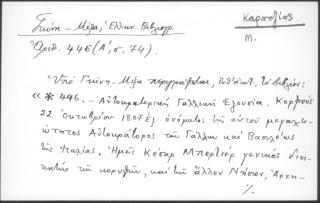 Γκίνη - Μέξα, Ἑλλην. Βιβλιογρ.
Καραζίας
Μ.
Ἀριθ. 446 (Α', σ. 74).
Ὑπὸ Γκίνη - Μέξα περιγράφεται, τὸ βιβλίον:
« * 446. - Αὐτοκρατορικὴ Γαλλικὴ Ἐξουσία. Κορφοὺς
22 Ὀκτωβρίου 1807. Ἐξ ὀνόματος τῆς αὐτοῦ μεγαλει-
ότητος Αὐτοκράτορος τῶν Γάλλων καὶ Βασιλέως
τῆς Ἰταλίας. Ἡμεῖς Κέσαρ Μπερτιὲρ γενικὸς διοι-
κητὴς τῶν Κορυφῶν, καὶ τῶν ἄλλων Νήσων, Ἀρχη-
./.